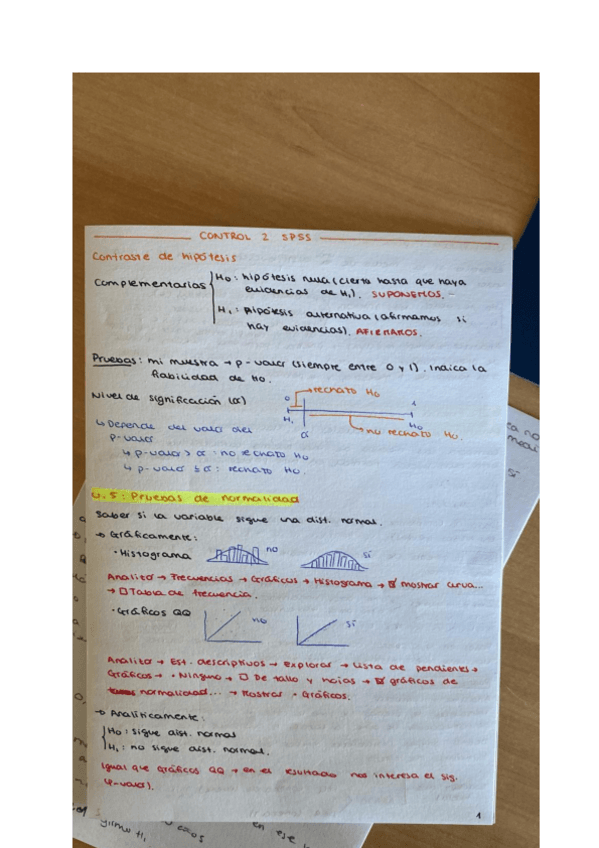 CONTROL 2 SPSS
Contraste de hipótesis
Complementarias
H0: hipótesis nula (cierta hasta que haya
evidencias de H1). SUPONEMOS.
H1: hipótesis alternativa (afirmamos si
hay evidencias). AFIRMAMOS.
Pruebas: mi muestra → p-valor (siempre entre 0 y 1). Indica la
fiabilidad de H0.
Nivel de significación (α)
rechazo H0
0 1
H1 α H0
no rechazo H0.
↳ Depende del valor del
p-valor
↳ p-valor > α: no rechazo H0
↳ p-valor ≤ α: rechazo H0.
U.5: Pruebas de normalidad
Saber si la variable sigue una dist. normal.
→ Gráficamente:
· Histograma no sí
Analizar → Frecuencias → Gráficos → Histograma → ☑ mostrar curva...
→ ☐ Tabla de frecuencia.
· Gráficos QQ no sí
Analizar → Est. descriptivos → explorar → Lista de pendientes →
Gráficos → · Ninguno → ☐ De tallo y hojas → ☑ gráficos de
normalidad... → Mostrar · Gráficos.
→ Analíticamente:
H0: sigue dist. normal
H1: no sigue dist. normal.
Igual que gráficos QQ → en el resultado nos interesa el sig.
(p-valor).
1